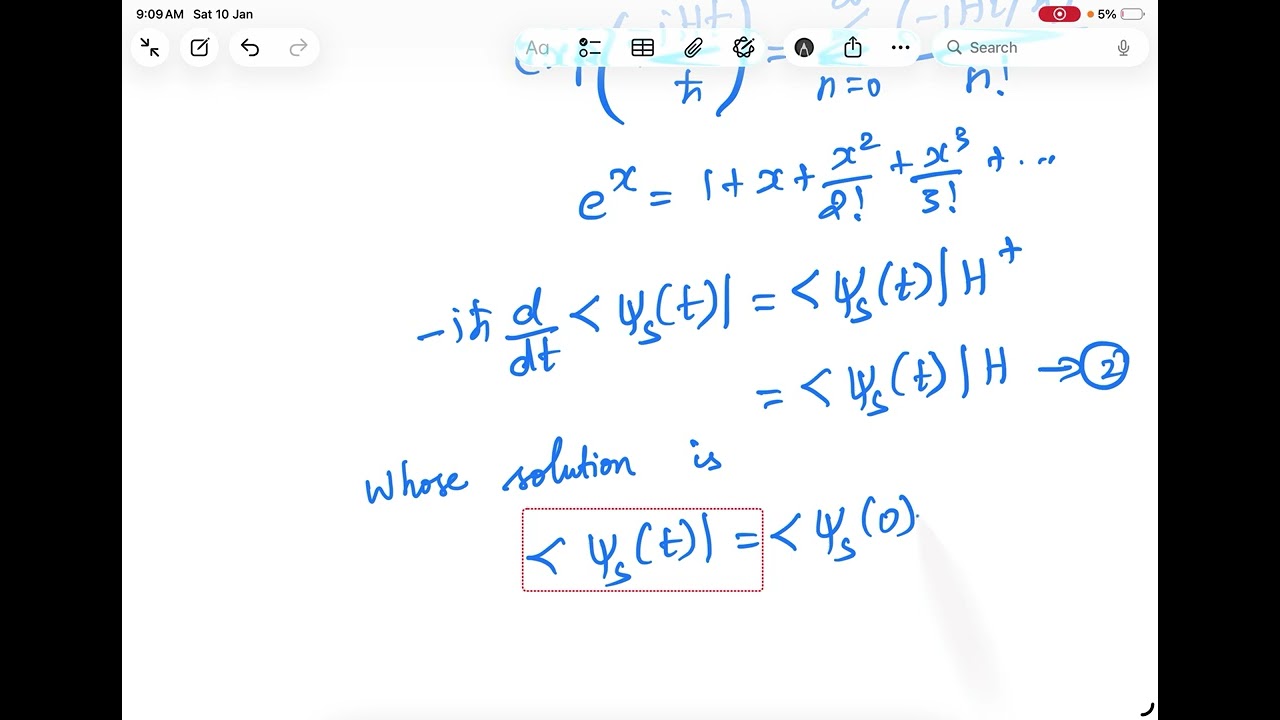 9:09 AM Sat 10 Jan 5%
Aa Search
ħ n=0 n!
e^x = 1 + x + x²/2! + x³/3! + ...
-iħ d/dt <ψₛ(t)| = <ψₛ(t)|H⁺
= <ψₛ(t)|H → ②
Whose solution is
<ψₛ(t)| = <ψₛ(0)